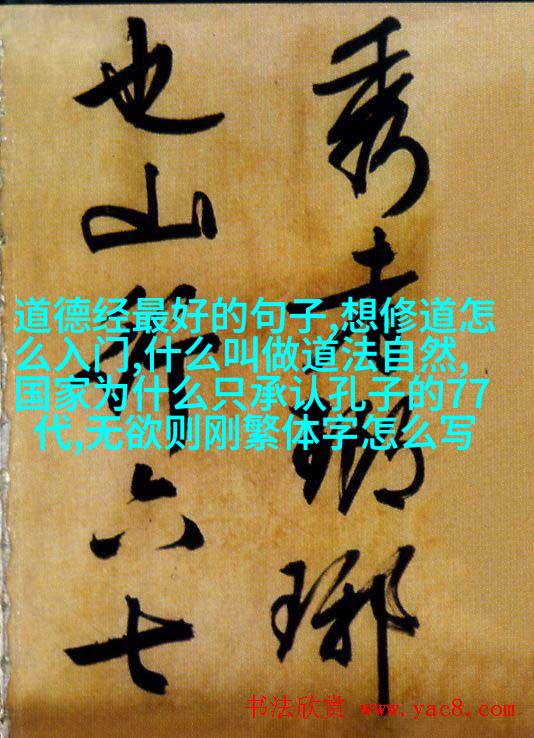 秀者瑯琊
也山行六七
道德经最好的句子,想修道怎
么入门,什么叫做道法自然,
国家为什么只承认孔子的77
代,无欲则刚繁体字怎么写
书法欣赏 www.yac8.com